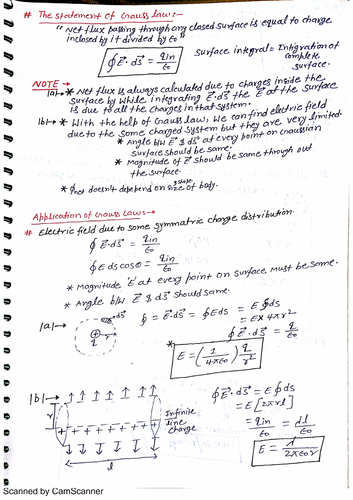 # The statement of Gauss law:-
"Net flux passing through any closed surface is equal to charge
inclosed by it divided by ε₀"
∮E⃗.dS⃗ = qin/ε₀
Surface integral = Intigration of
complete
surface.
NOTE →
|a|→ * Net flux is always calculated due to charges inside the
surface by while integrating E⃗.dS⃗ the E⃗ at the surface
is due to all the charges in that system.
|b|→ * With the help of Gauss law, we can find electric field
due to the some charged system but they are very limited.
* Angle b/w E⃗ & dS⃗ at every point on Gaussian
surface should be same.
* Magnitude of E⃗ should be same through out
the surface.
* ϕnet doesn't depend on size & shape of body.
Application of Gauss Laws →
# Electric field due to some symmatric charge distribution.
∮ E⃗.dS⃗ = qin/ε₀
∮ E ds cosθ = qin/ε₀
* Magnitude 'E' at every point on surface must be same.
* Angle b/w E⃗ & dS⃗ should same.
|a|→
dS⃗
+
q
r
∮ = E⃗.dS⃗ = ∮Eds = E∮ds
= E×4πr²
∮E⃗.dS⃗ = q/ε₀
* E = (1/4πε₀) q/r²
|b|→
r
+ + + + + + + +
Infinite
line
charge
l
∮E⃗.dS⃗ = E∮ds
= E[2πrl]
= qin/ε₀ = λl/ε₀
E = λ/2πε₀r
Scanned by CamScanner